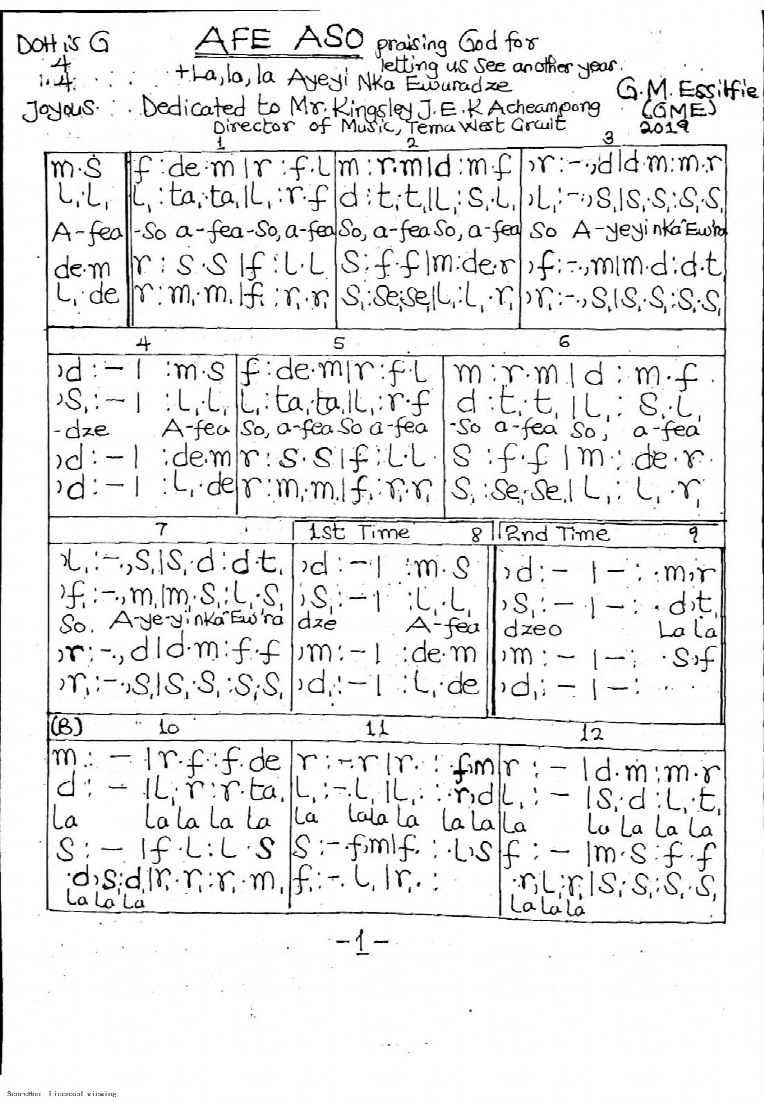 DOH is G AFE ASO praising God for
4 letting us see another year.
1.4 + La, la, la Ayeyi Nka Ewuradze G.M. Essilfie
Joyous. Dedicated to Mr. Kingsley J.E.K Acheampong (GME)
Director of Music, Tema West Circuit 2019
1 2 3
m.s | f : de.m | r : f.l | m : r.m | d : m.f | ,r : -.,d | d.m : m.r
l,.l, | l, : ta,.ta, | l, : r.f | d : t,.t, | l, : s,.l, | ,l, : -.,s, | s,.s, : s,.s,
A-fea -so a-fea-so, a-fea so, a-fea so, a-fea so A-yeyi nka Ew'ra
de.m | r : s.s | f : l.l | s : f.f | m : de.r | ,f : -.,m | m.d : d.t,
l,.de | r : m,.m, | f, : r,.r, | s, : se,.se, | l, : l,.r, | ,r, : -.,s, | s,.s, : s,.s,
4 5 6
,d : - | : m.s | f : de.m | r : f.l | m : r.m | d : m.f
,s, : - | : l,.l, | l, : ta,.ta, | l, : r.f | d : t,.t, | l, : s,.l,
-dze A-fea so, a-fea so a-fea -so a-fea so, a-fea
,d : - | : de.m | r : s.s | f : l.l | s : f.f | m : de.r
,d : - | : l,.de | r : m,.m, | f, : r,.r, | s, : se,.se, | l, : l,.r,
7 1st Time 8 2nd Time 9
,l, : -.,s, | s,.d : d.t, | ,d : - | : m.s | ,d : - | - : .m,r
,f, : -.,m, | m,.s, : l,.s, | ,s, : - | : l,.l, | ,s, : - | - : .d,t,
so. A-ye-yi nka Ew'ra dze A-fea dzeo La la
,r : -.,d | d.m : f.f | ,m : - | : de.m | ,m : - | - : .s,f
,r, : -.,s, | s,.s, : s,.s, | ,d, : - | : l,.de | ,d, : - | - :
(B) 10 11 12
m : - | r.f : f.de | r : -.r | r. : .f,m | r : - | d.m : m.r
d : - | l,.r : r.ta, | l, : -.l, | l,. : .r,d | l, : - | s,.d : l,.t,
La La La La La La La La La La La La La La La La
s : - | f.l : l.s | s : -.f,m | f. : .l,s | f : - | m.s : f.f
.d,s,:d | r.r, : r,.m, | f, : -.l, | r,. : | .r,l,:r, | s,.s, : s,.s,
La La La La La La
-1-